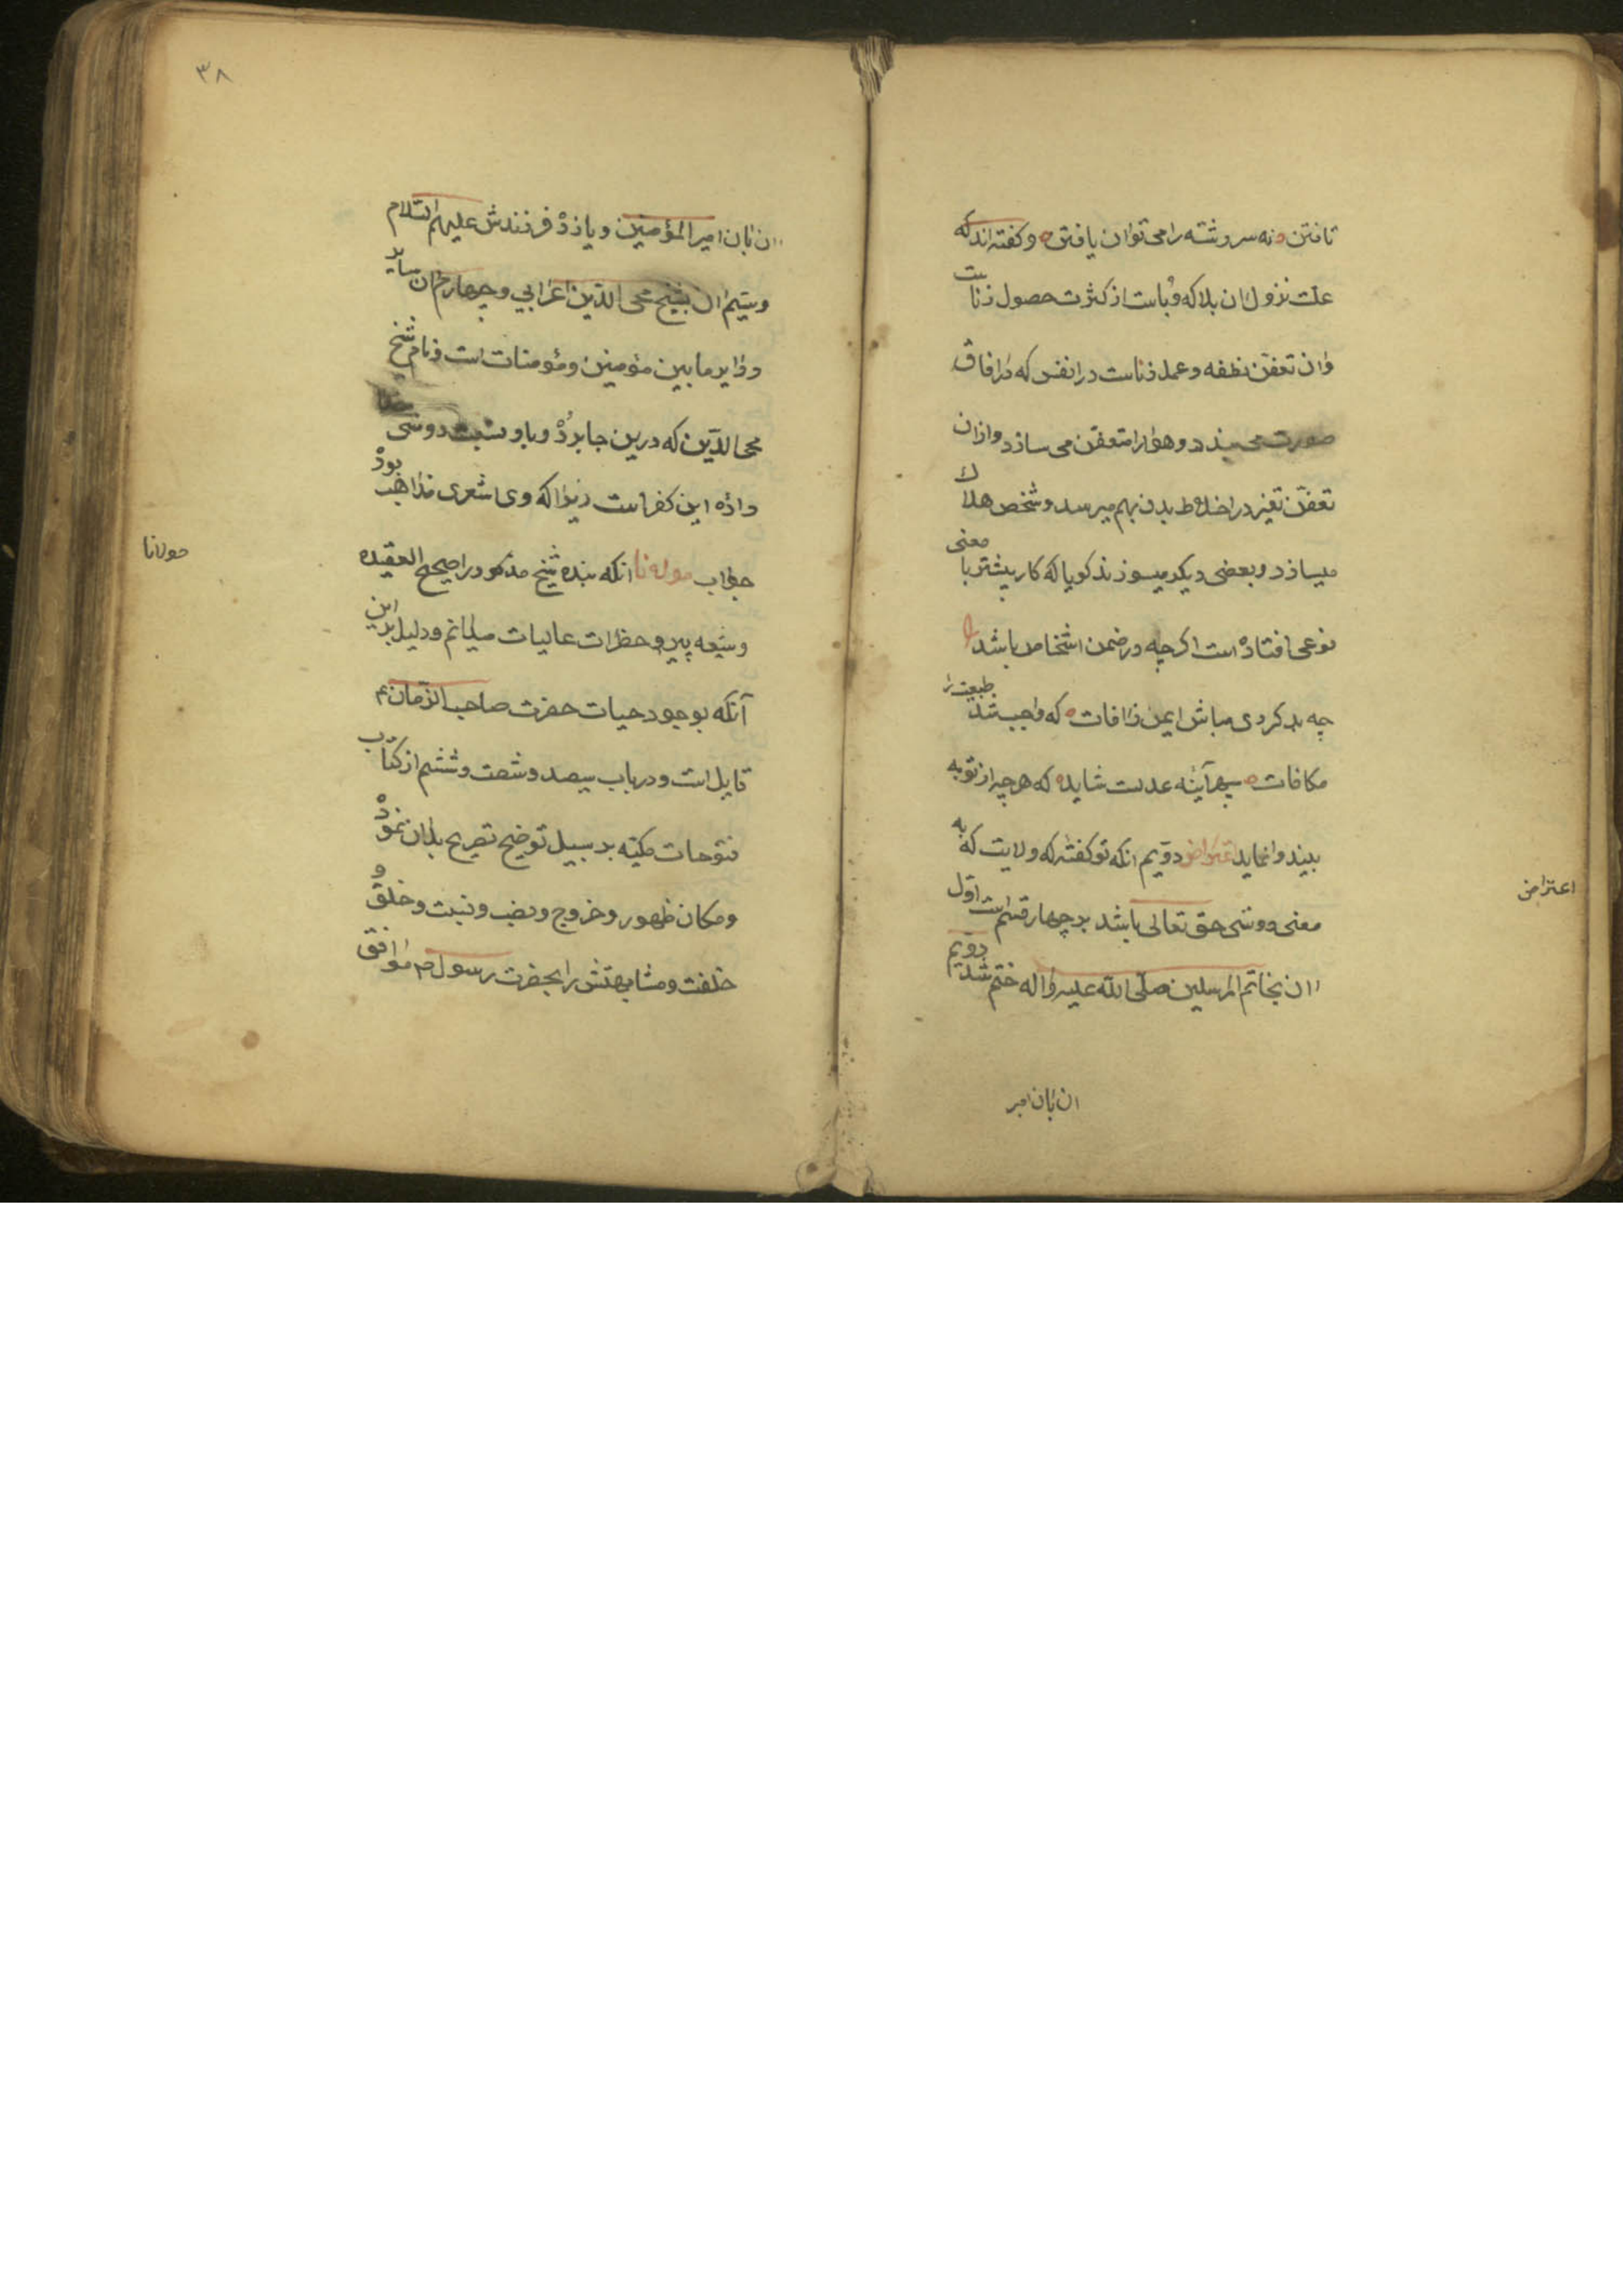 تافتن نه سررشته را می توان یافتن و کفته اند که
علت نزول ان بلا که وباست از کثرت حصول زناست
وان تعفن نطفه و عمل زناست در انفس که در افاق
صورت می بندد و هوا را متعفن می سازد و ازان
تعفن تغیر در اخلاط بدن بهم میرسد و شخص هلاک
میسازد و بعضی دیکر میسوزند کویا که کار بیشتر با معنی
نوعی افتاده است اکرچه در ضمن اشخاص باشد
چه بد کردی مباش ایمن ز افات که واجب شد طبیعت را
مکافات سپهر آینه عدلست شاید که هرچه از تو به
بیند وانماید اعتراض دویم انکه تو کفته که ولایت که به
اعتراض
معنی دوستی حق تعالی باشد بر چهار قسم است اول
ان بخاتم المرسلین صلی الله علیه واله ختم شد دویم
ان بان امیر
۳۸
ان بان امیر المؤمنین و یازده فرزندش علیهم السلام
وسیم ان بشیخ محی الدین اعرابی و چهارم ان سایر
ودایر مابین مؤمنین ومؤمنات است و نام شیخ
محی الدین که درین جا برده و باو نسبت دوستی
داده این کفر است زیرا که وی اشعری مذاهب بود
جواب مولانا انکه بنده شیخ مذکور را صحیح العقیده
مولانا
وشیعه پیرو حظرات عالیات میدانم و دلیل براین
آنکه بوجود حیات حضرت صاحب الزمان ع
قایل است و در باب سیصد و شصت و ششم از کتاب
فتوحات مکیه بر سبیل توضیح تصریح بدان نموده
ومکان ظهور و خروج و نصب و نسبت و خلق و
خلقت و مشابهتش را بحضرت رسول ص موافق